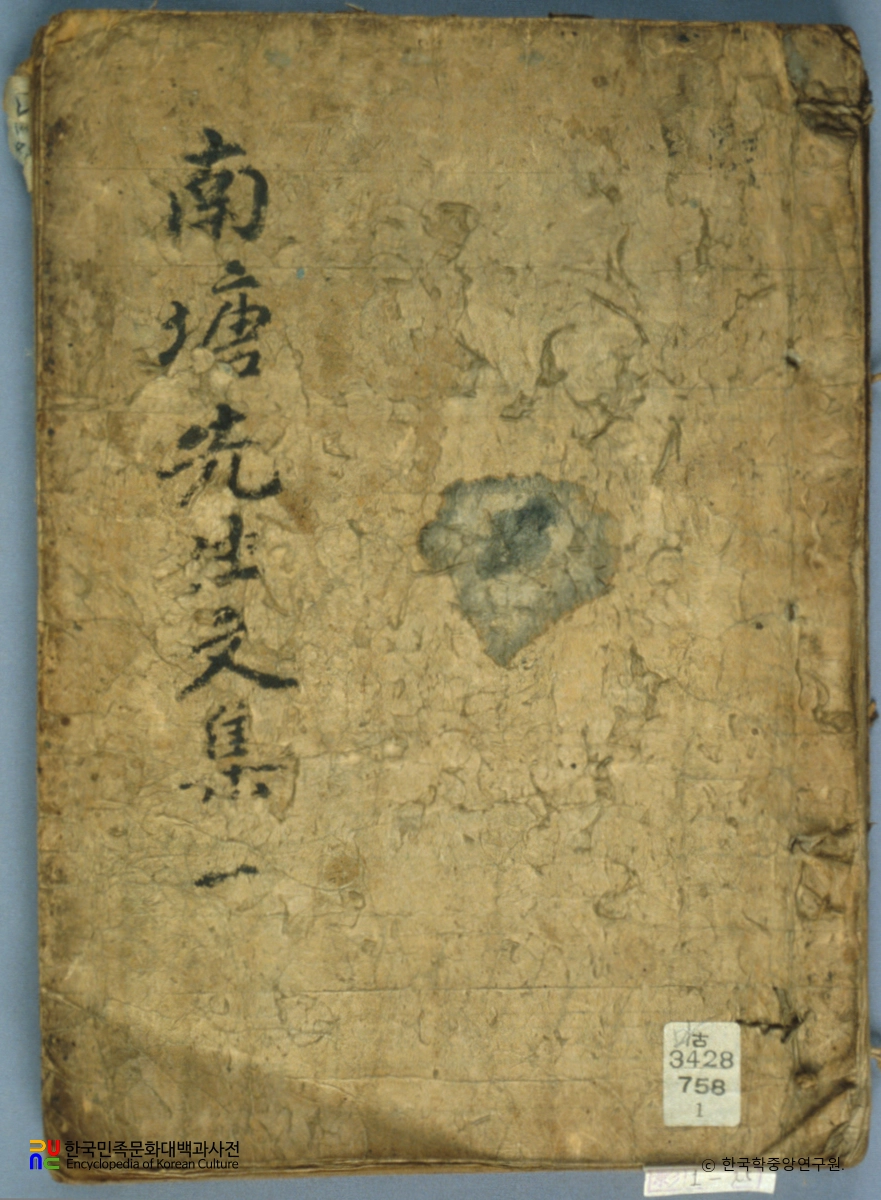 南塘先生文集 一
古
3428
758
1
한국민족문화대백과사전
Encyclopedia of Korean Culture
© 한국학중앙연구원.